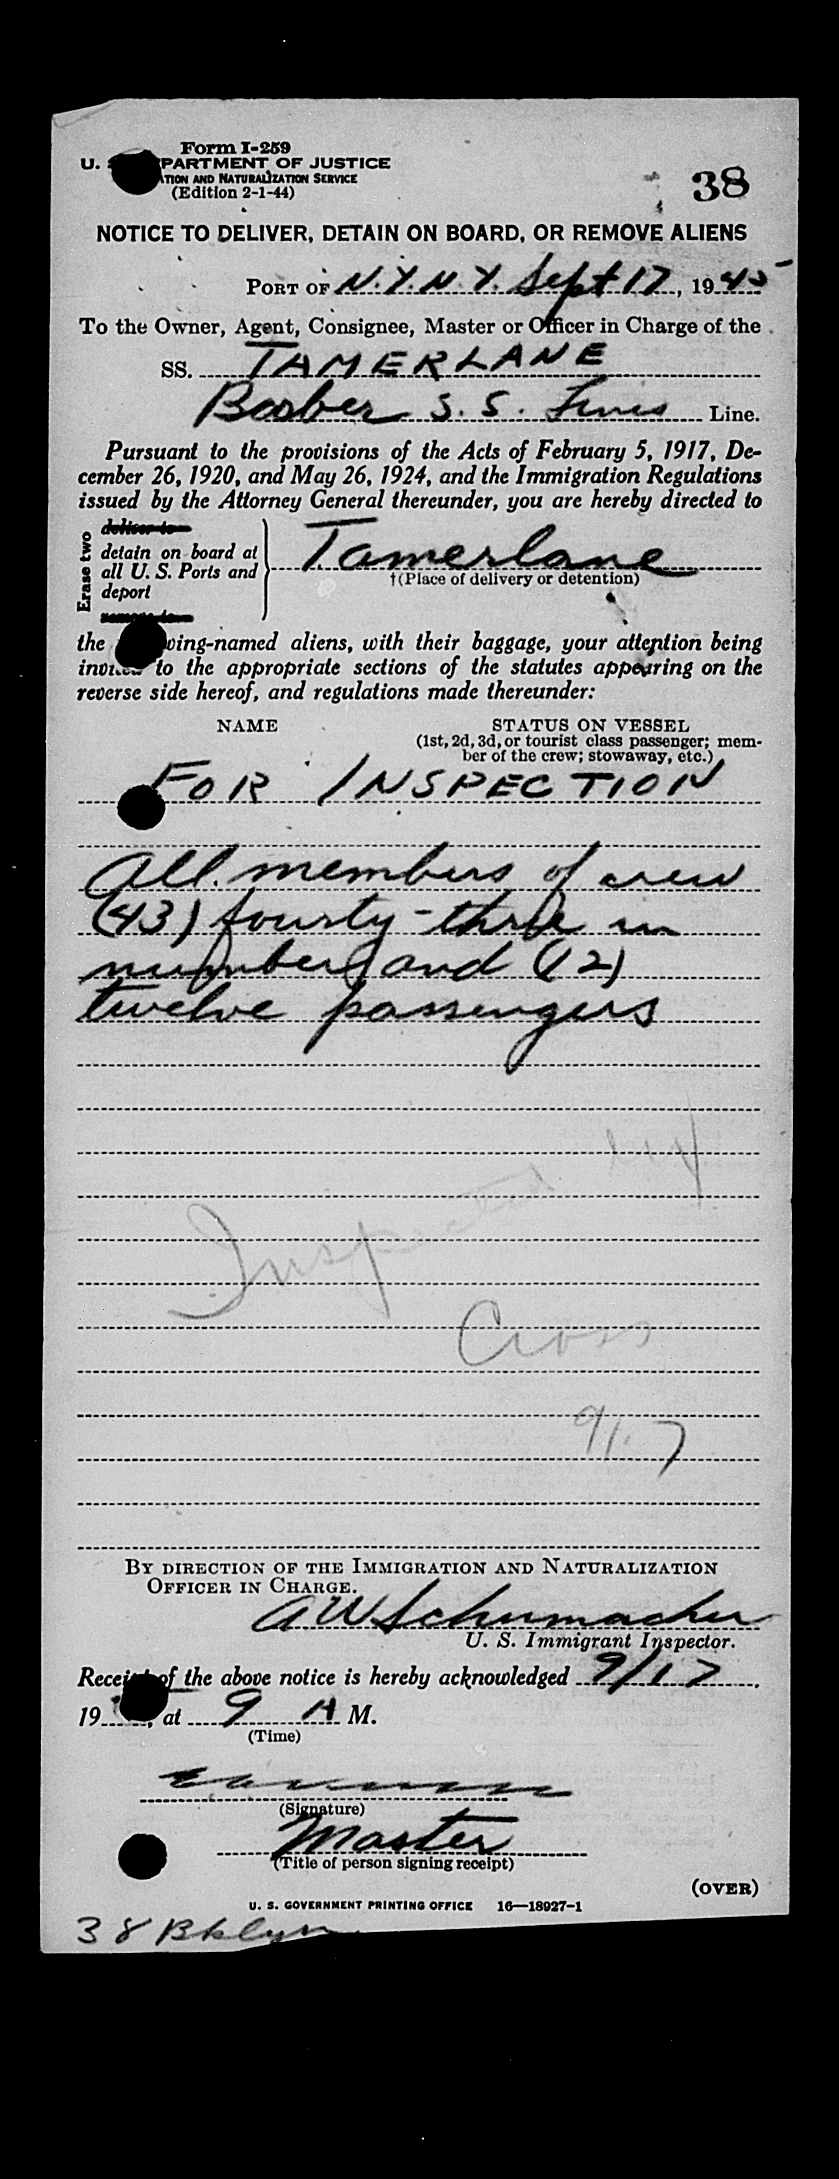 Form I-259
U. S. DEPARTMENT OF JUSTICE
IMMIGRATION AND NATURALIZATION SERVICE
(Edition 2-1-44)
38
NOTICE TO DELIVER, DETAIN ON BOARD, OR REMOVE ALIENS
PORT OF N.Y.N.Y. Sept 17, 1945
To the Owner, Agent, Consignee, Master or Officer in Charge of the
SS. TAMERLANE
Barber S.S. Lines Line.
Pursuant to the provisions of the Acts of February 5, 1917, De-
cember 26, 1920, and May 26, 1924, and the Immigration Regulations
issued by the Attorney General thereunder, you are hereby directed to
Erase two
deliver to
detain on board at
all U. S. Ports and
deport
remove to
Tamerlane
†(Place of delivery or detention)
the following-named aliens, with their baggage, your attention being
invited to the appropriate sections of the statutes appearing on the
reverse side hereof, and regulations made thereunder:
NAME STATUS ON VESSEL
(1st, 2d, 3d, or tourist class passenger; mem-
ber of the crew; stowaway, etc.)
FOR INSPECTION
All members of crew
(43) fourty-three in
number and (12)
twelve passengers
Inspected by
Cross
9/17
BY DIRECTION OF THE IMMIGRATION AND NATURALIZATION
OFFICER IN CHARGE.
A W Schumacher
U. S. Immigrant Inspector.
Receipt of the above notice is hereby acknowledged 9/17,
19, at 9 A M.
(Time)
(Signature)
Master
(Title of person signing receipt)
(OVER)
U. S. GOVERNMENT PRINTING OFFICE 16—18927-1
38 Bklyn